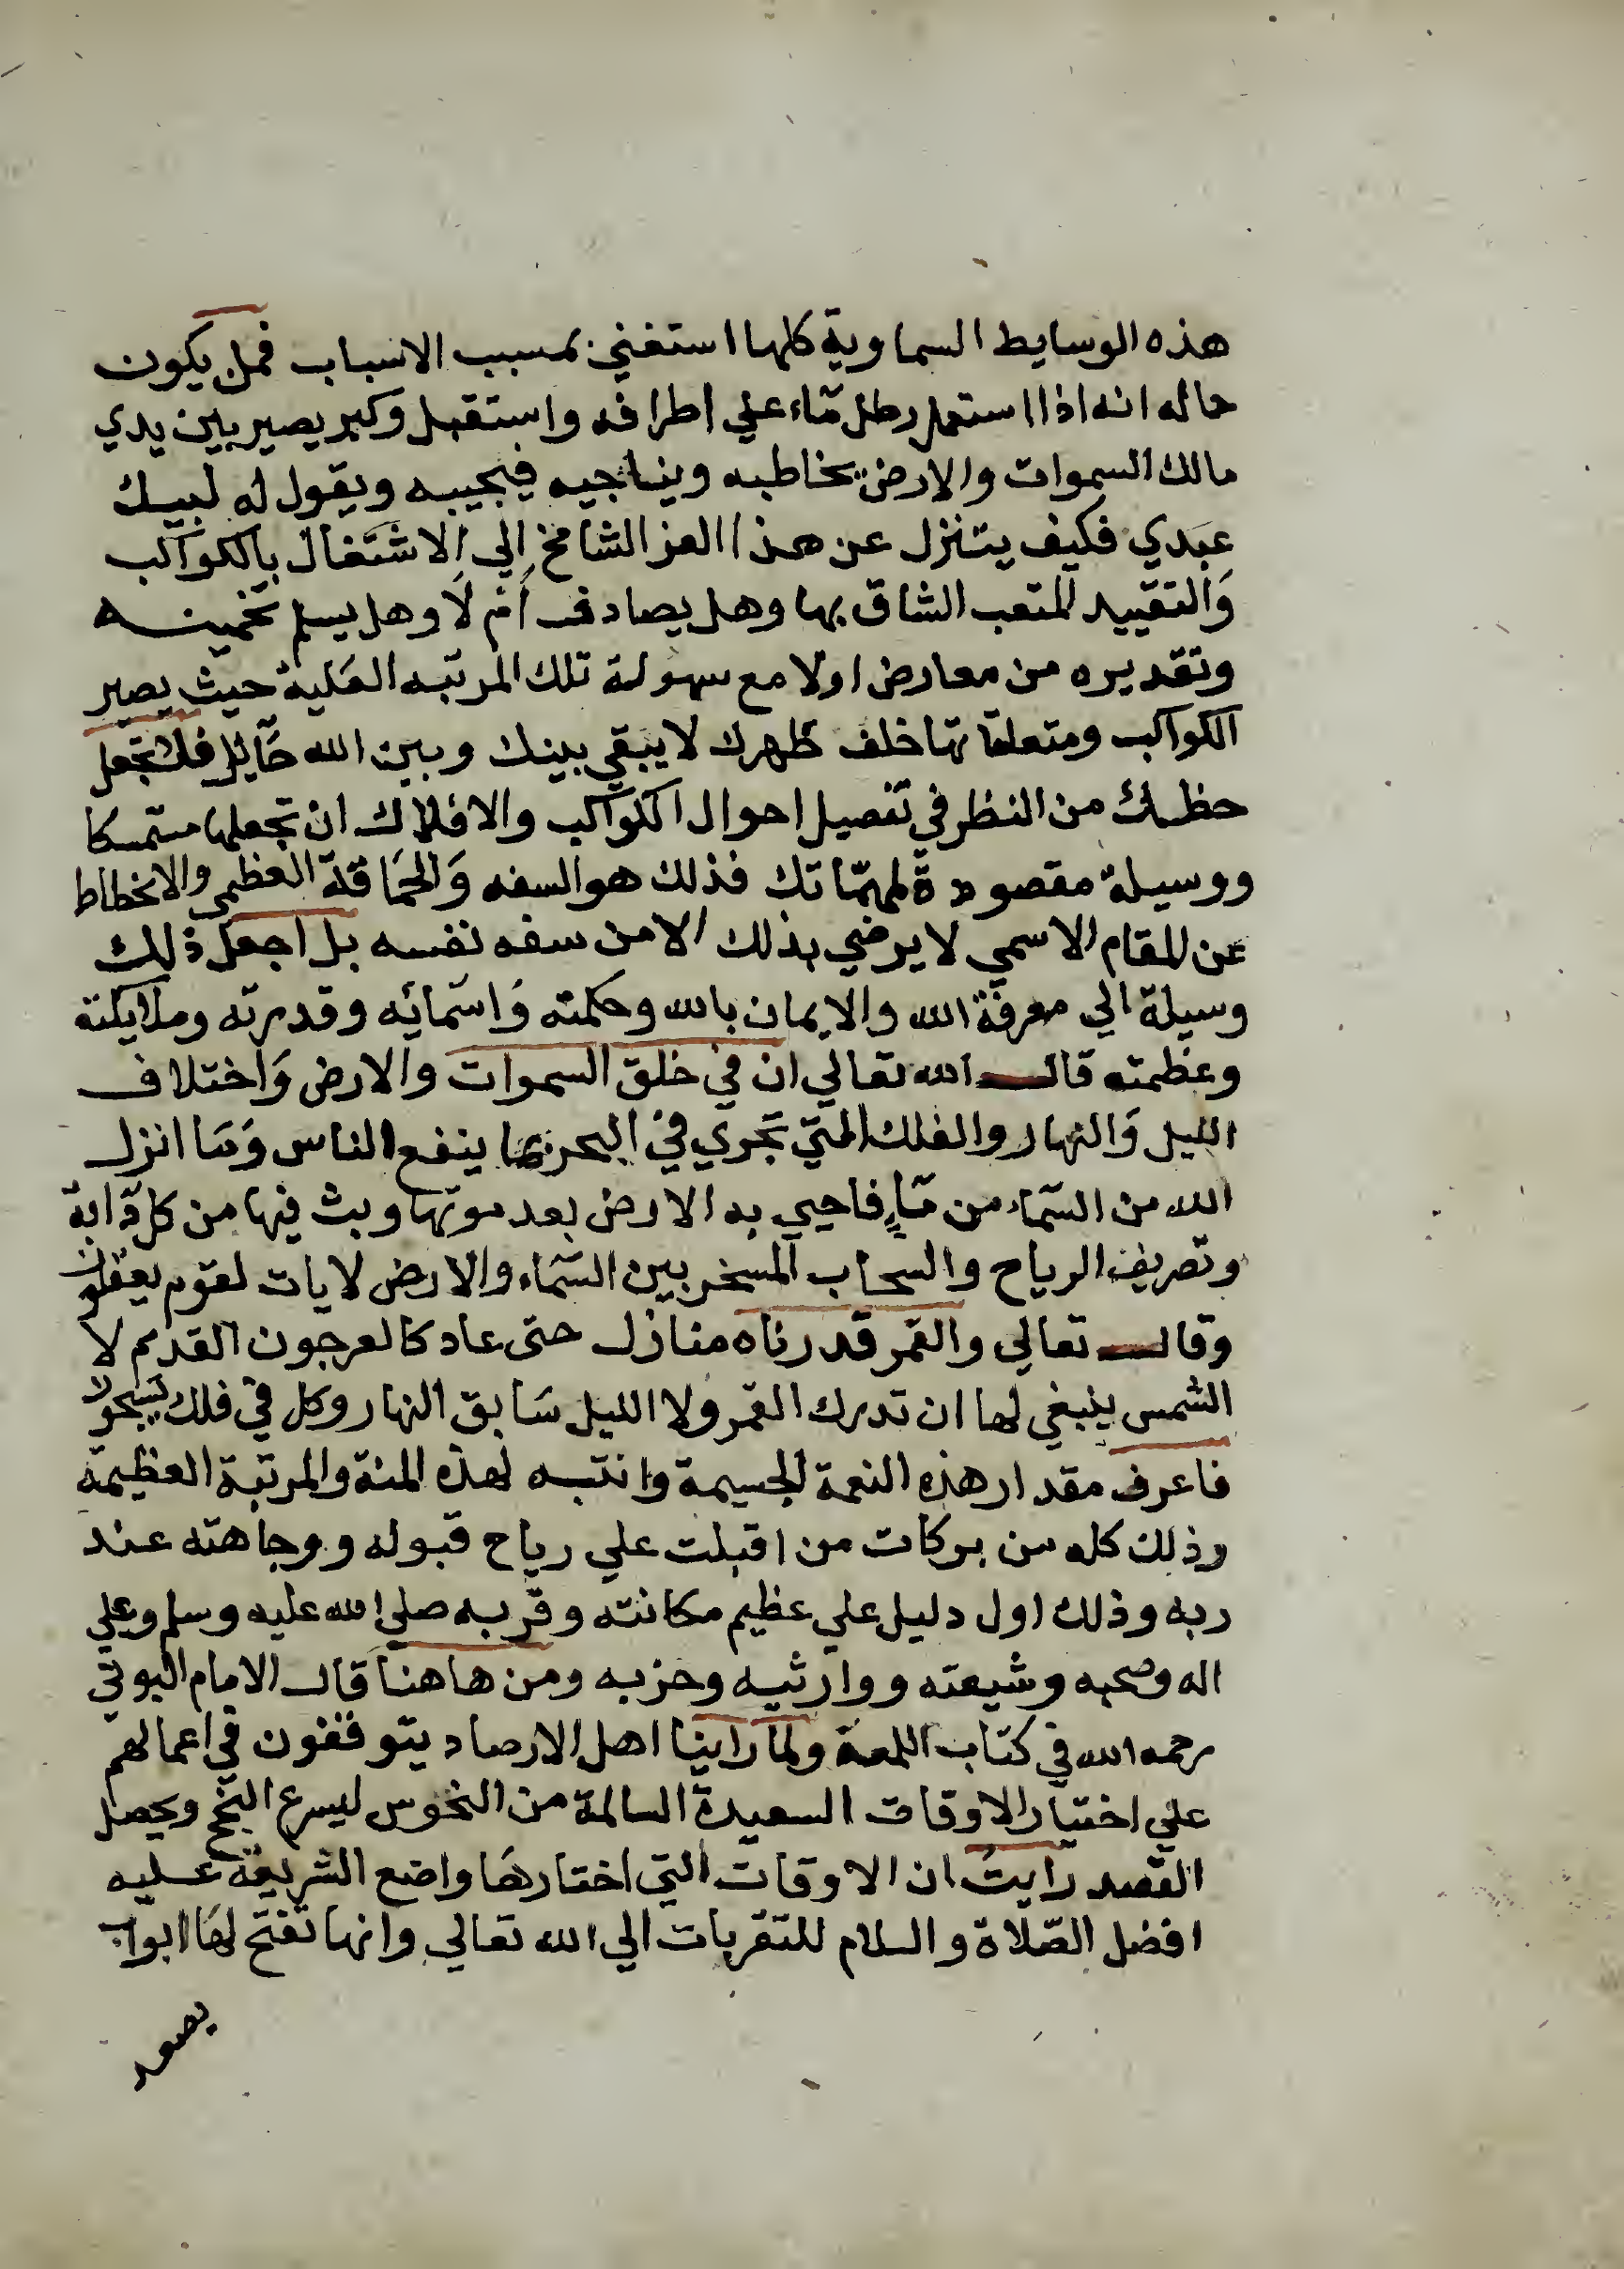 هذه الوسايط السماوية كلها استغني بمسبب الاسباب فمن يكون
حاله انه اذا استعمل رطل مآء علي اطرافه واستقبل وكبر يصير بين يدي
مالك السموات والارض يخاطبه ويناجيه فيجيبه ويقول له لبيك
عبدي فكيف يتنزل عن هذا العز الشامخ الي الاشتغال بالكواكب
والتقييد المتعب الشاق بها وهل يصادف ام لا وهل يسلم تخمينه
وتقديره من معارض اولا مع سهولة تلك المرتبه العلية حيث يصير
الكواكب ومتعلقاتها خلف ظهرك لا يبقي بينك وبين الله حآئل فلا تجعل
حظك من النظر في تفصيل احوال الكواكب والافلاك ان تجعلها مستمسكا
ووسيلة مقصودة لمهمّاتك فذلك هو السفه والحماقة العظمي والانحطاط
عن المقام الاسمي لا يرضي بذلك الا من سفه نفسه بل اجعل ذلك
وسيلة الي معرفة الله والايمان بالله وحكمته واسمائه وقدرته وملايكته
وعظمته قال الله تعالي ان في خلق السموات والارض واختلاف
الليل والنهار والفلك التي تجري في البحر بما ينفع الناس وما انزل
الله من السمآء من مآء فاحيي به الارض بعد موتها وبث فيها من كل دآبة
وتصريف الرياح والسحاب المسخر بين السمآء والارض لايات لقوم يعقلون
وقال تعالي والقمر قدرناه منازل حتى عاد كالعرجون القديم لا
الشمس ينبغي لها ان تدرك القمر ولا الليل سابق النهار وكل في فلك يسبحون
فاعرف مقدار هذه النعمة الجسيمة وانتبه لهذه المنة والمرتبة العظيمة
وذلك كله من بركات من اقبلت علي رياح قبوله ووجاهته عند
ربه وذلك اول دليل علي عظيم مكانته وقربه صلي الله عليه وسلم وعلي
اله وصحبه وشيعته ووارثيه وحزبه ومن هاهنا قال الامام البوني
رحمه الله في كتاب اللمعة ولما راينا اهل الارصاد يتوقفون في اعمالهم
علي اختيار الاوقات السعيدة السالمة من النحوس ليسرع النجح ويحصل
القصد رايت ان الاوقات التي اختارها واضع الشريعة عليه
افضل الصّلاة والسلام للتقربات الي الله تعالي وانها تفتح لها ابواب
يصعد